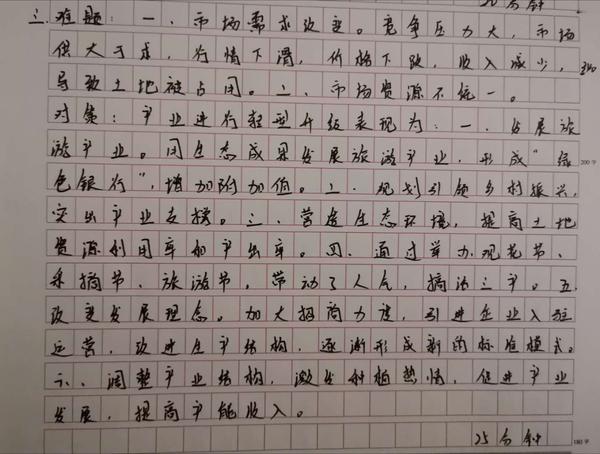 20分钟
三、难题：一、市场需求改变。竞争压力大，市场
供大于求，行情下滑，价格下跌，收入减少，
导致土地被占用。二、市场资源不统一。
对策：产业进行转型升级表现为：一、发展旅
游产业。用生态成果发展旅游产业，形成“绿
色银行”，增加附加值。二、规划引领乡村振兴，
突出产业支撑。三、营造生态环境，提高土地
资源利用率和产出率。四、通过举办观花节、
采摘节、旅游节，带动了人气，搞活三产。五、
改变发展理念。加大招商力度，引进企业入驻
运营，改进生产结构，逐渐形成新的标准模式。
六、调整产业结构，激发种植热情，促进产业
发展，提高产能收入。
25分钟